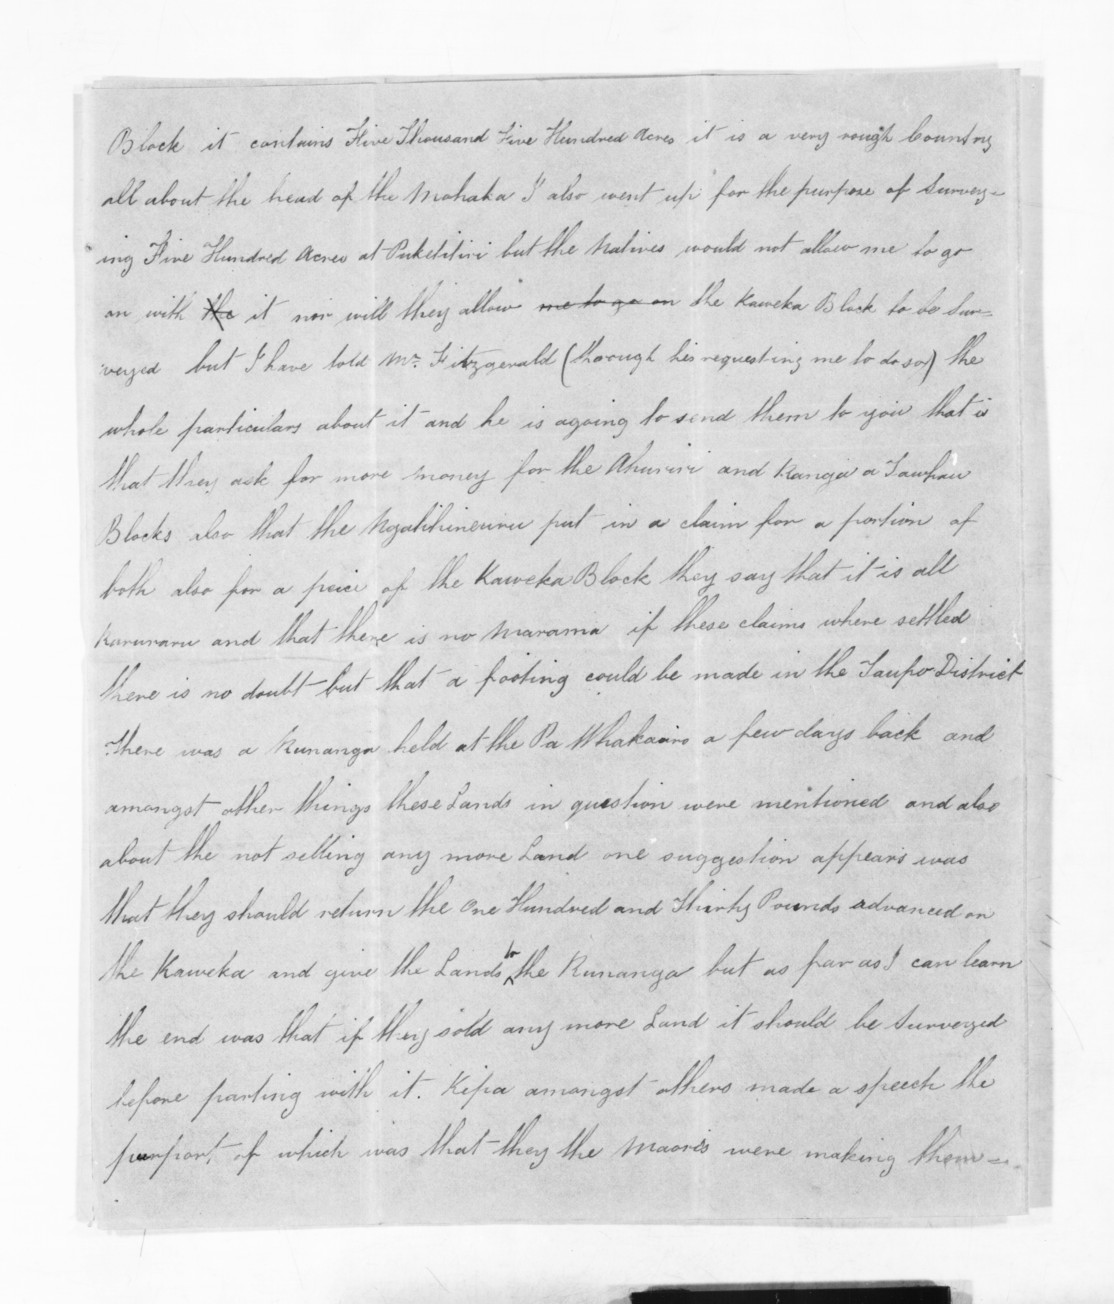 Block it contains Five Thousand Five Hundred Acres it is a very rough Country
all about the head of the Mohaka I also went up for the purpose of Survey-
ing Five Hundred Acres at Puketitiri but the Natives would not allow me to go
on with the it nor will they allow me to go on the Kaweka Block to be Sur-
veyed but I have told Mr. Fitzgerald (through his requesting me to do so) the
whole particulars about it and he is agoing to send them to you that is
that they ask for more money for the Ahuriri and Ranga a Tawhau
Blocks also that the Ngatihineuru put in a claim for a portion of
both also for a peice of the Kaweka Block they say that it is all
Karuraru and that there is no Marama if these claims where settled
there is no doubt but that a footing could be made in the Taupo District
There was a Runanga held at the Pa Whakairo a few days back and
amongst other things these Lands in question were mentioned and also
about the not selling any more Land one suggestion appears was
that they should return the One Hundred and Thirty Pounds advanced on
the Kaweka and give the Lands to the Runanga but as far as I can learn
the end was that if they sold any more Land it should be Surveyed
before parting with it. Kipa amongst others made a speech the
purport of which was that they the Maoris were making them-